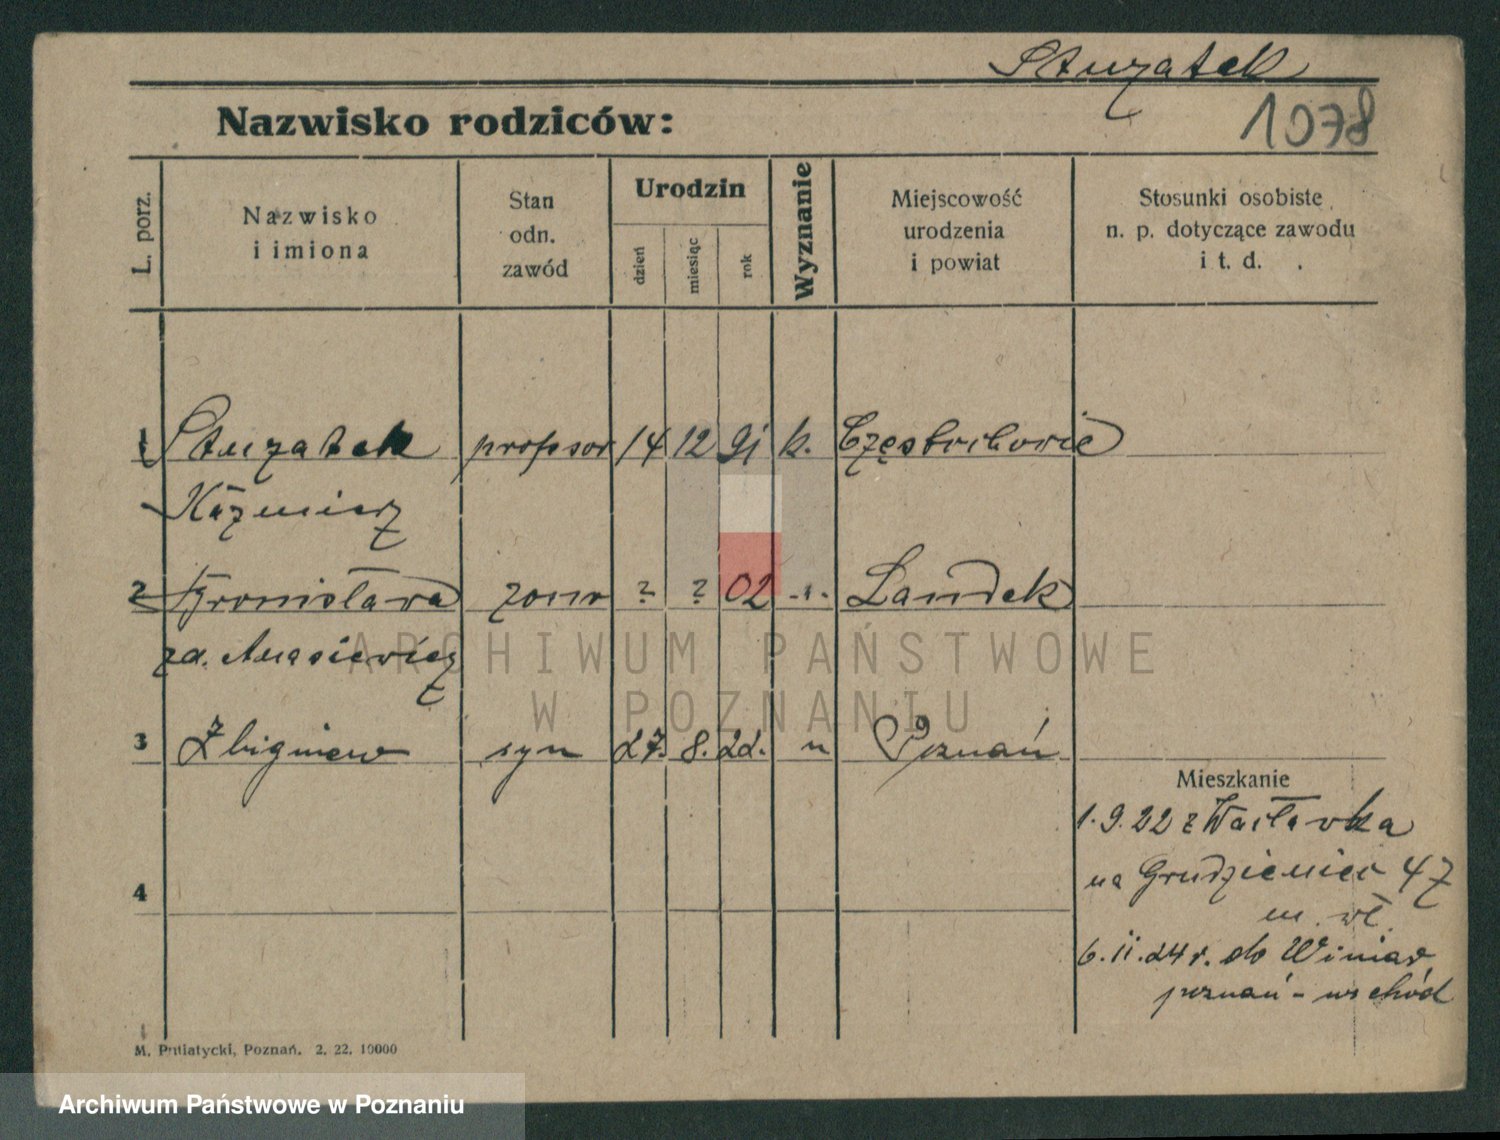 Sturzatek
1078
Nazwisko rodziców:
L. porz.
Nazwisko
i imiona
Stan
odn.
zawód
Urodzin
dzień
miesiąc
rok
Wyznanie
Miejscowość
urodzenia
i powiat
Stosunki osobiste
n. p. dotyczące zawodu
i t. d.
1 profssor 14 12 91 k. Częstochowie
Kaźmierz
2 Bronisława żona ? ? 02 -"- Landek
zd.
3 Zbigniew syn 27. 8. 22. " Poznań
Mieszkanie
1. 9. 22 z
na Grudzieniec 47
m. wł.
4
6. II. 24 r. do Winiar
poznań - wschód
M. Putiatycki, Poznań. 2. 22. 10000
ARCHIWUM PAŃSTWOWE
W POZNANIU
Archiwum Państwowe w Poznaniu